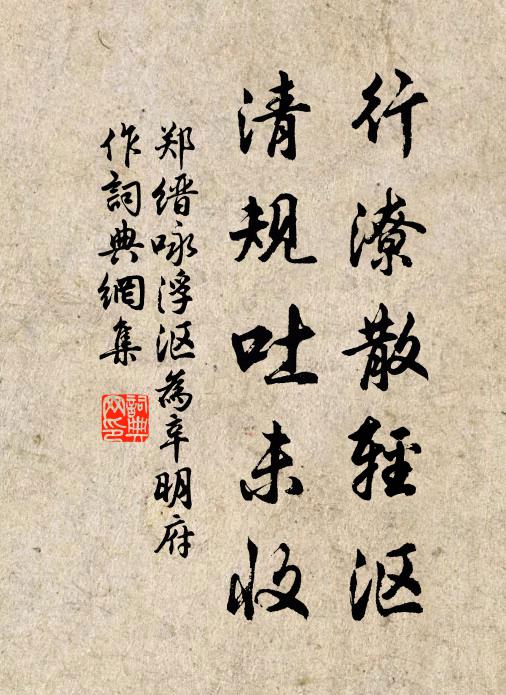 行潦散輕沤
清規吐未收
郑缙咏浮沤為辛明府
作詞典網集
詞典網印